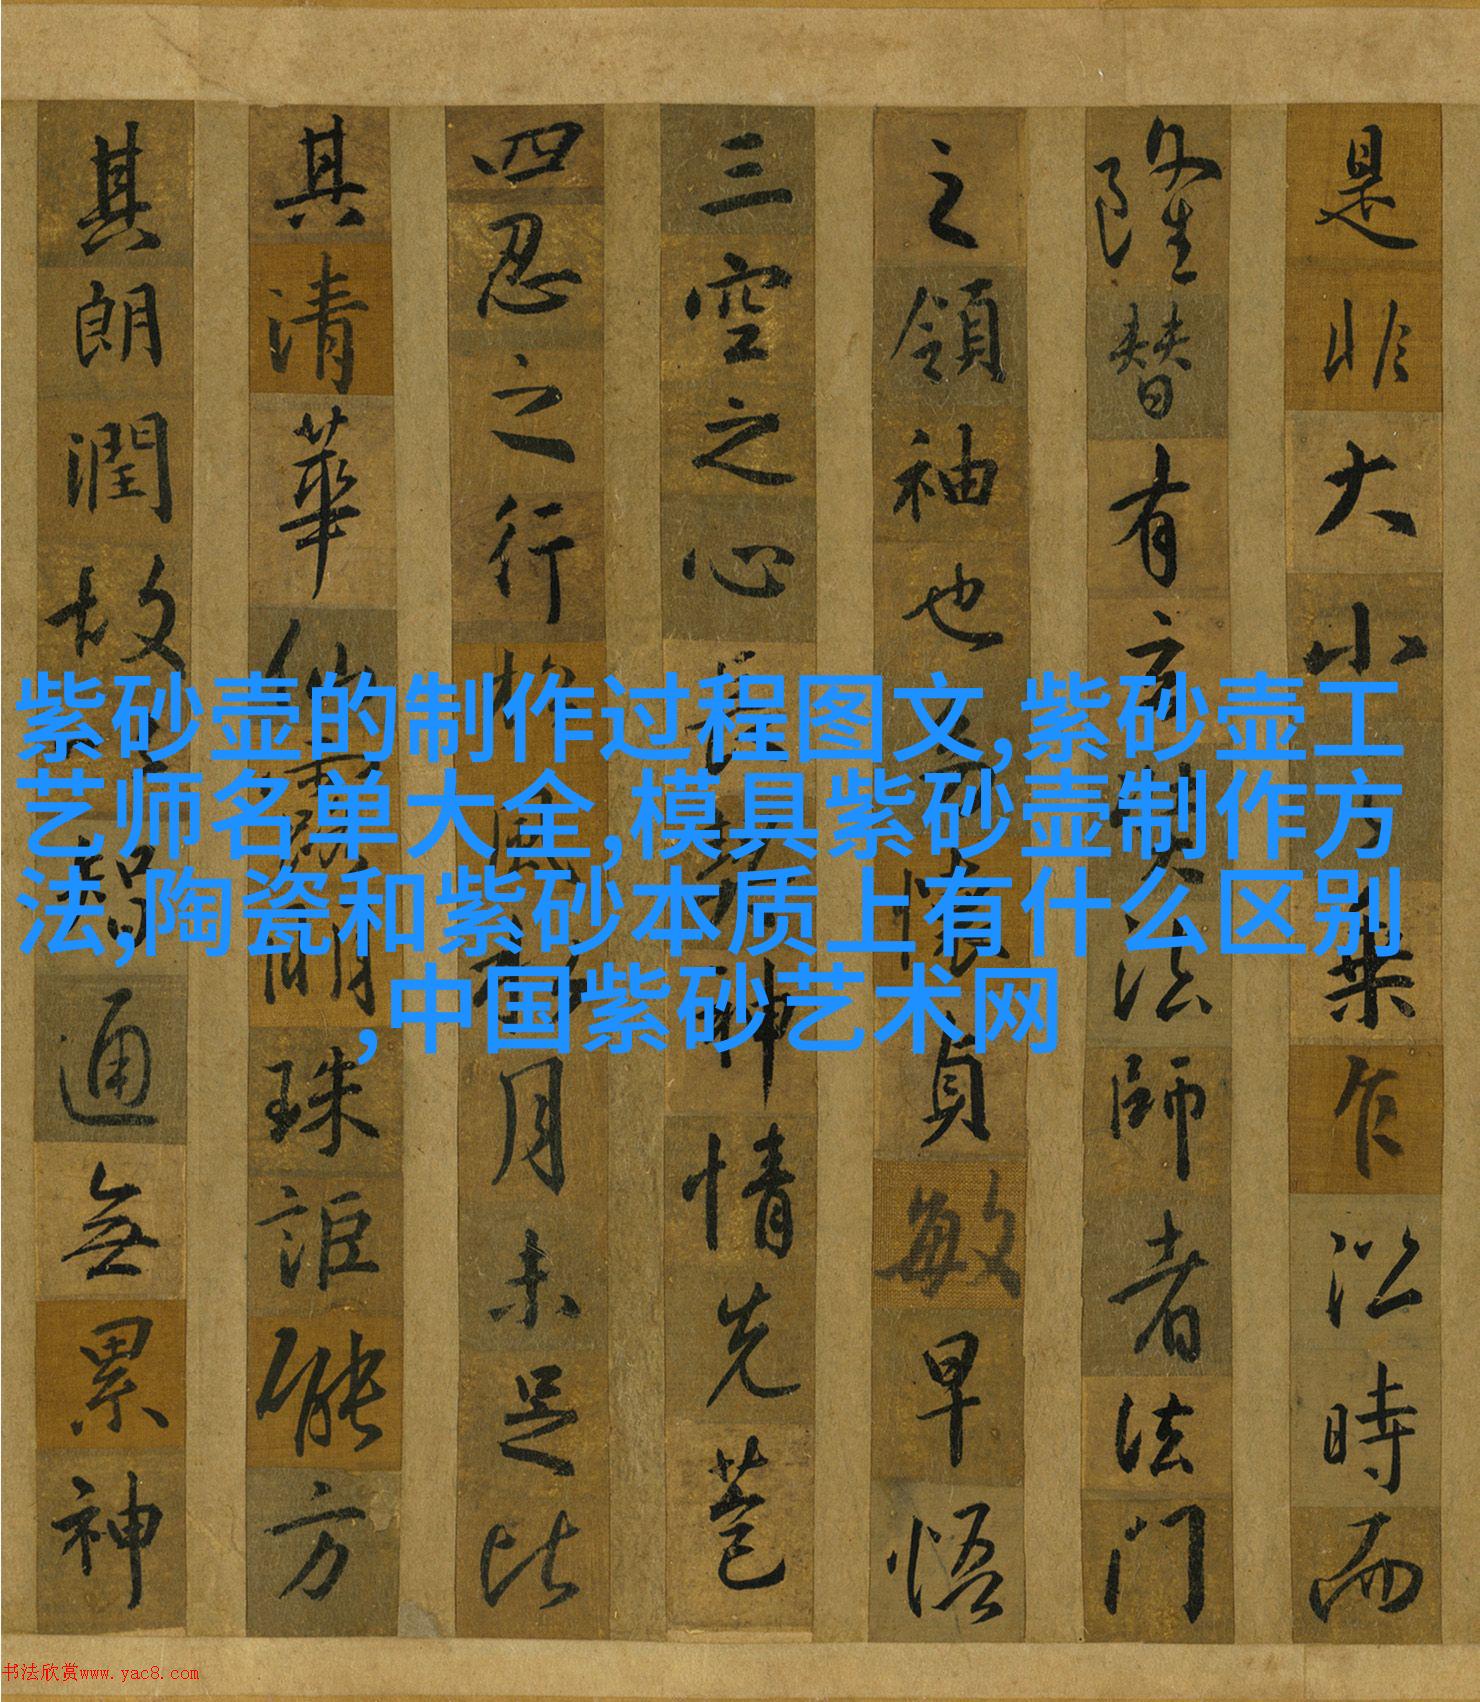 是非大小乘乍沿時而
隆替有玄法師者法門
之領袖也懷貞敏早悟
三空之心長契神情先苞
四忍之行松風月未足比
其清華仙露明珠詎能方
其朗潤故智通無累神
紫砂壶的制作过程图文,紫砂壶工
艺师名单大全,模具紫砂壶制作方
法,陶瓷和紫砂本质上有什么区别
,中国紫砂艺术网
书法欣赏www.yac8.com